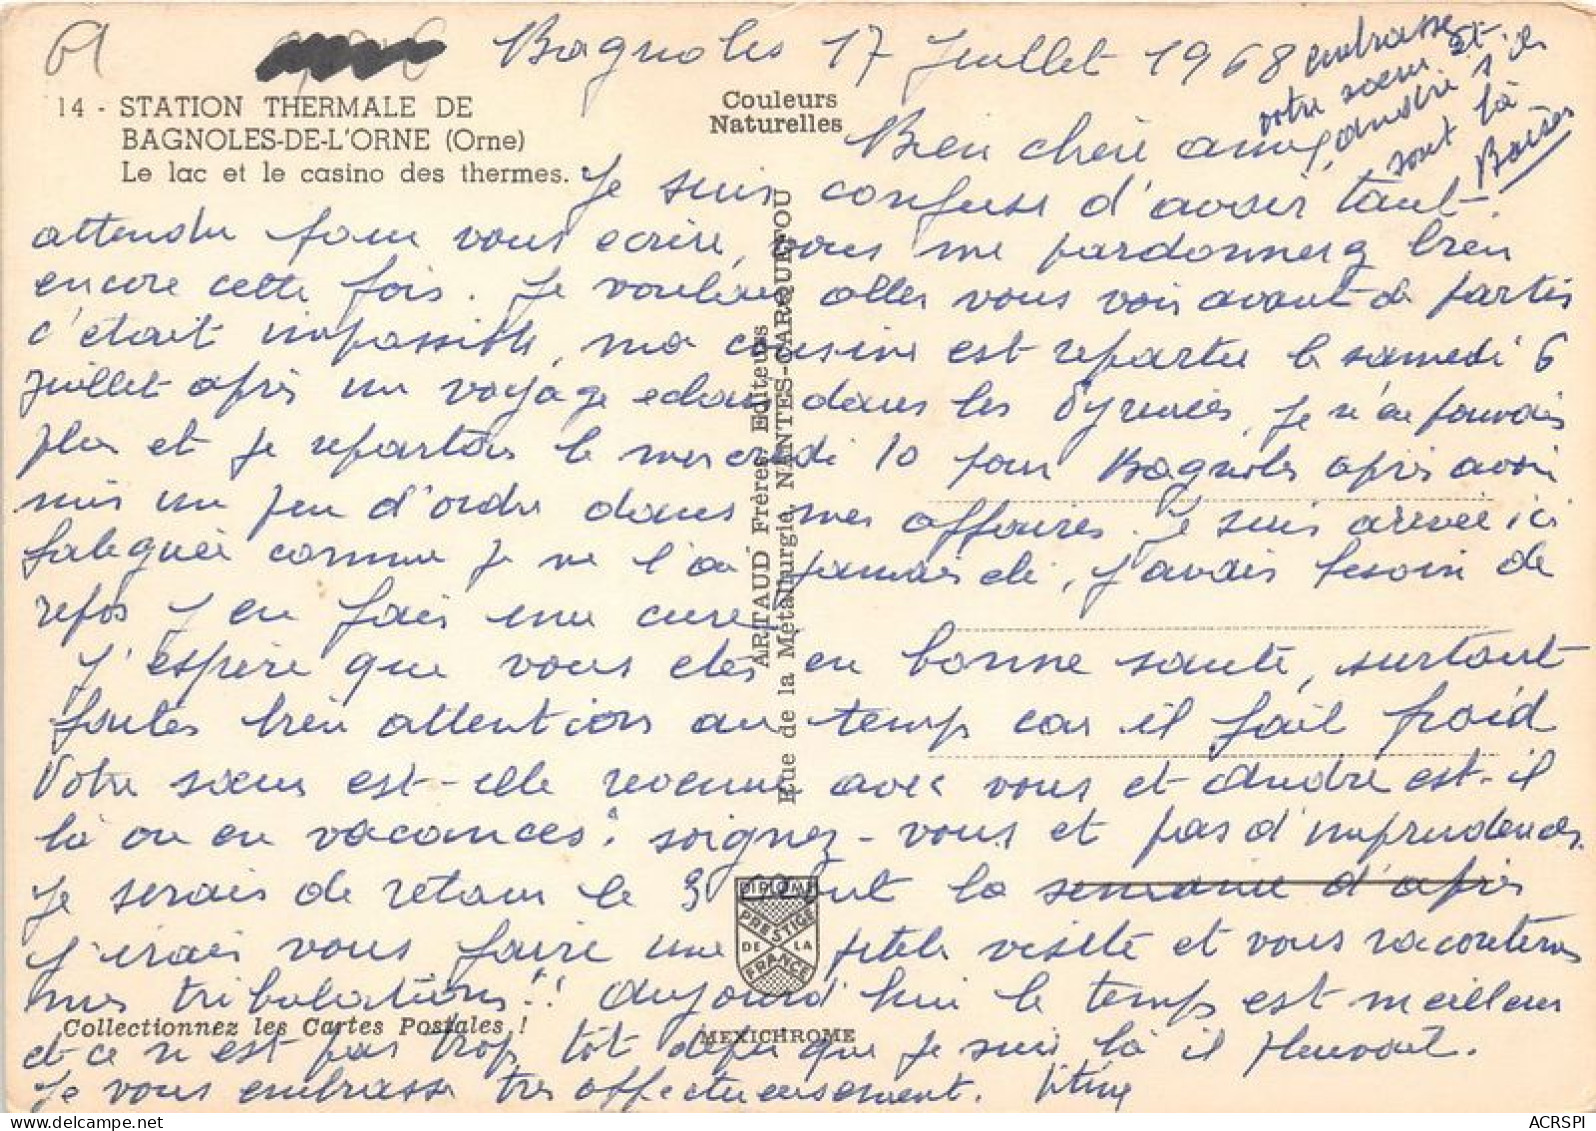 61
Bagnoles 17 Juillet 1968
14 - STATION THERMALE DE
BAGNOLES-DE-L'ORNE (Orne)
Le lac et le casino des thermes.
Couleurs
Naturelles
embrasse
votre sœur et
André s'ils
sont là
Baisers
Bien chère amie,
Je suis confuse d'avoir tant
attendu pour vous ecrire, vous me pardonnerez bien
encore cette fois. Je voulais aller vous voir avant de partir
c'etait impossible, ma cousine est repartie le samedi 6
juillet après un voyage dans les Pyrenées, je n'en pouvais
plus et je repartais le mercredi 10 pour Bagnoles après avoir
mis un peu d'ordre dans mes affaires. Je suis arrivée ici
fatiguée comme je ne l'ai jamais été, j'avais besoin de
repos j'en fais une cure.
J'espère que vous etes en bonne santé, surtout
faites bien attention au temps car il fait froid
Votre sœur est-elle revenue avec vous et André est-il
là ou en vacances? soignez-vous et pas d'imprudences.
Je serais de retour le 3 Aout la semaine d'après
j'irais vous faire une petite visite et vous raconterai
mes tribulations!! Aujourd'hui le temps est meilleur
et ce n'est pas trop tôt depuis que je suis là il pleuvait.
Je vous embrasse très affectueusement. Titine
ARTAUD Frères, Editeurs
Rue de la Métallurgie, NANTES-CARQUEFOU
DIPLOME
PRESTIGE
DE LA
FRANCE
Collectionnez les Cartes Postales !
MEXICHROME
delcampe.net
ACRSPI